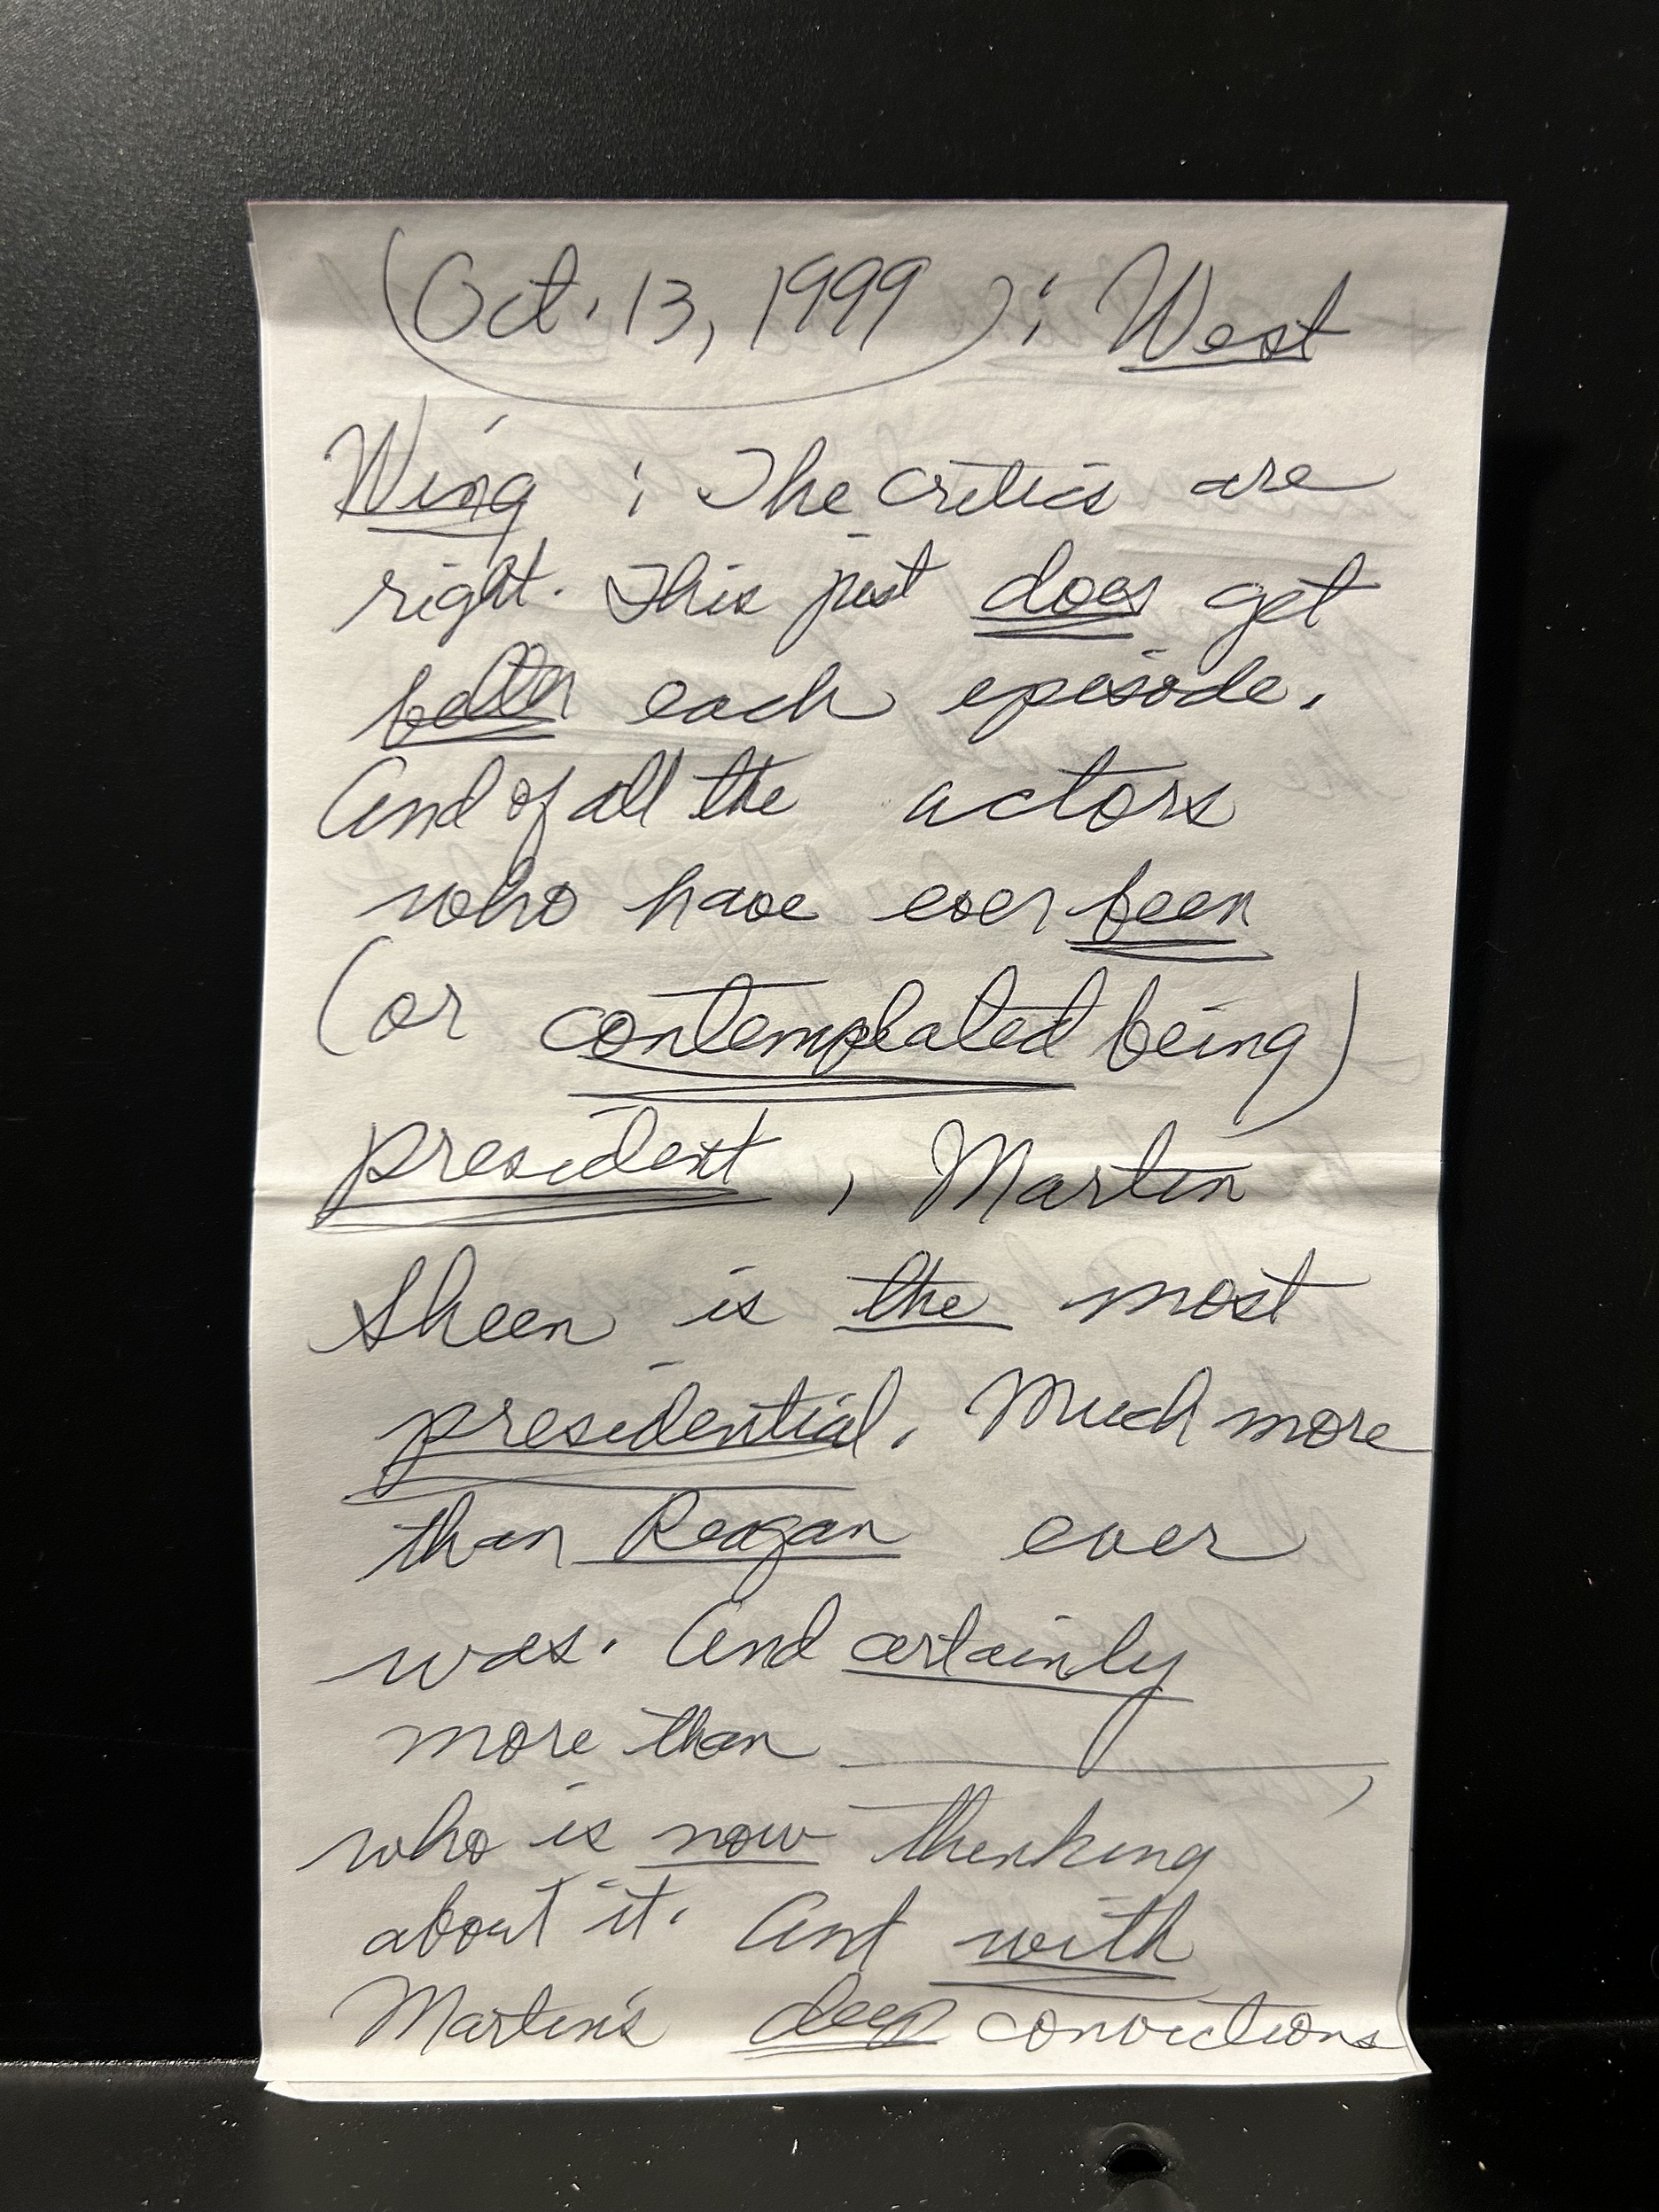 (Oct. 13, 1999): West
Wing: The critics are
right. This just does get
better each episode.
And of all the actors
who have ever been
(or contemplated being)
president, Martin
Sheen is the most
presidential. Much more
than Reagan ever
was. And certainly
more than __________,
who is now thinking
about it. And with
Martin's deep convictions